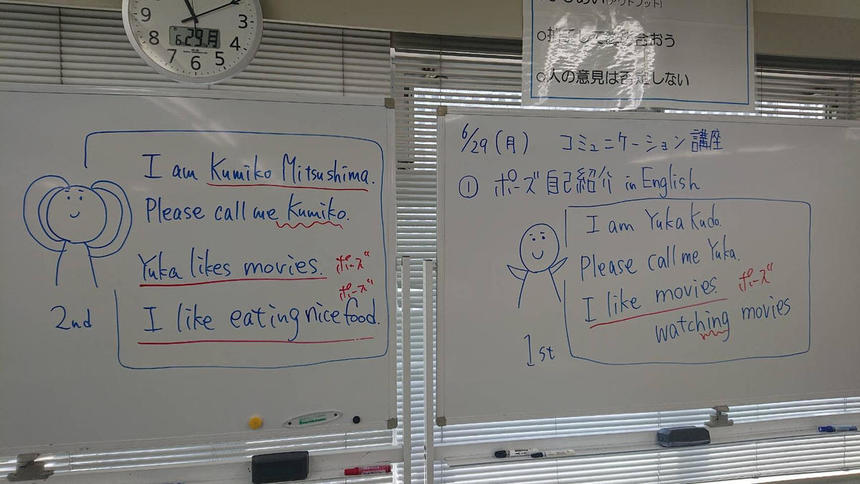 I am Kumiko Mitsushima.
Please call me Kumiko.
Yuka likes movies. ポーズ
I like eating nice food. ポーズ
2nd
6/29(月) コミュニケーション講座
① ポーズ自己紹介 in English
I am Yuka Kudo.
Please call me Yuka.
I like movies. ポーズ
watching movies
1st
○人の意見は否定しない
9
3
8
4
7
6
5
6 29 月